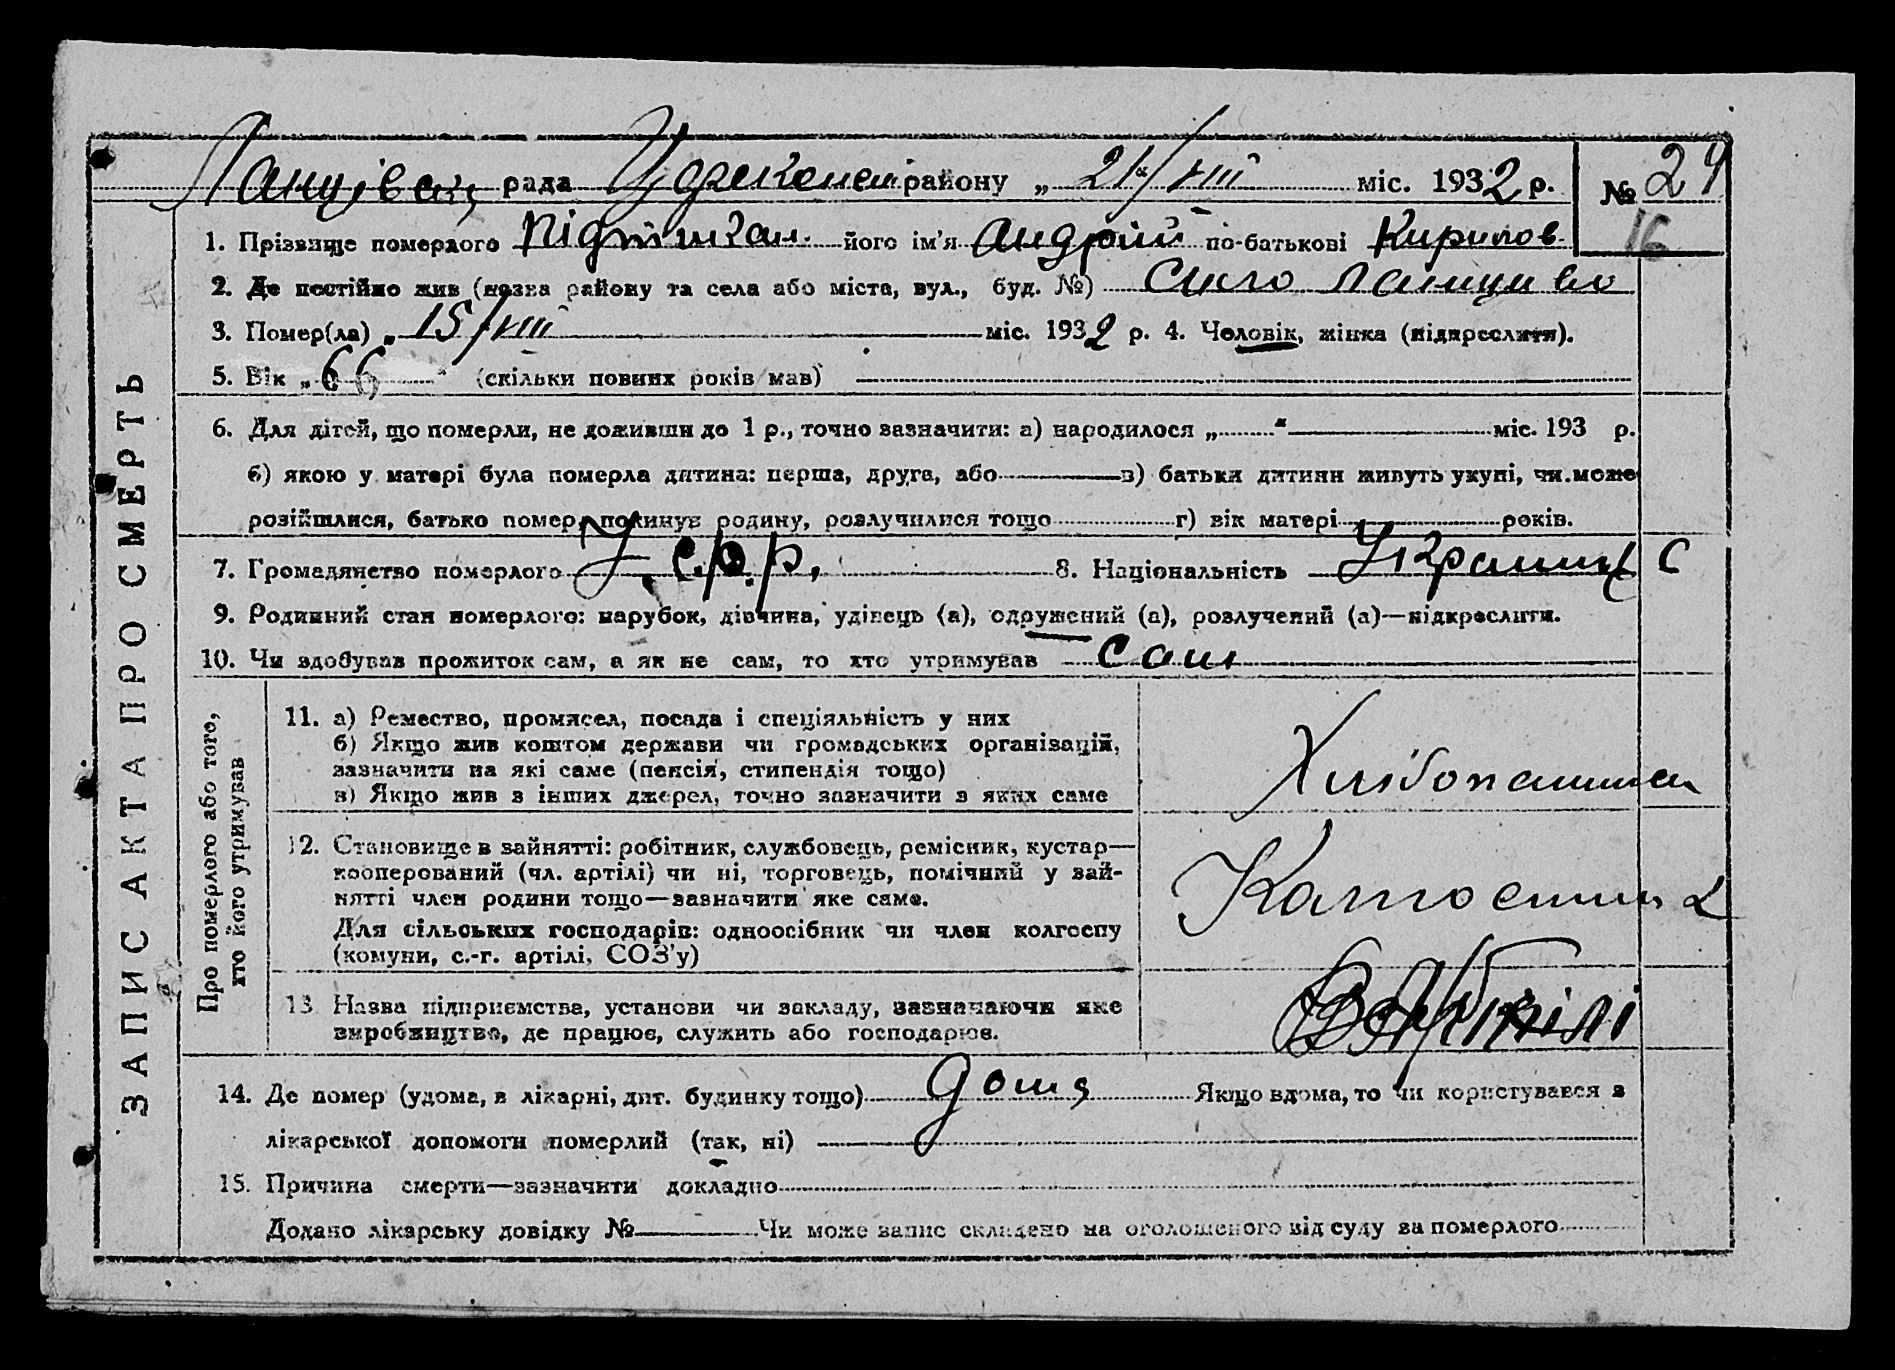 рада району „ 21/VIII міс. 1932 р. № 24
16
1. Прізвище померлого його ім'я Андрій по-батькові Кирилов
2. Де постійно жив (назва району та села або міста, вул., буд. №) село
3. Помер(ла) „ 15/VIII міс. 1932 р. 4. Человік, жінка (підкреслити).
5. Вік „ 66 " (скільки повних років мав)
6. Для дітей, що померли, не доживши до 1 р., точно зазначити: а) народилося „ " міс. 193 р.
б) якою у матері була померла дитина: перша, друга, або в) батьки дитини живуть укупі, чи може
розійшлися, батько помер, покинув родину, розлучилися тощо г) вік матері років.
7. Громадянство померлого У.С.Р.Р. 8. Національність Українец С
9. Родинний стан померлого: парубок, дівчина, удівець (а), одружений (а), розлучений (а)—підкреслити.
10. Чи здобував прожиток сам, а як не сам, то хто утримував сам
ЗАПИС АКТА ПРО СМЕРТЬ
Про померлого або того,
хто його утримував
11. а) Ремество, промисел, посада і спеціяльність у них
б) Якщо жив коштом держави чи громадських організацій,
зазначити на які саме (пенсія, стипендія тощо)
в) Якщо жив з інших джерел, точно зазначити з яких саме
Хлібопашец
12. Становище в зайнятті: робітник, службовець, ремісник, кустар—
кооперований (чл. артілі) чи ні, торговець, помічний у зай-
нятті член родини тощо—зазначити яке саме.
Для сільських господарів: одноосібник чи член колгоспу
(комуни, с.-г. артілі, СОЗ'у)
2
13 Назва підприємства, установи чи закладу, зазначаючи яке
виробництво, де працює, служить або господарює.
14. Де помер (удома, в лікарні, дит. будинку тощо) дома Якщо вдома, то чи користувався з
лікарської допомоги померлий (так, ні)
15. Причина смерти—зазначити докладно
Додано лікарську довідку № Чи може запис складено на оголошеного від суду за померлого